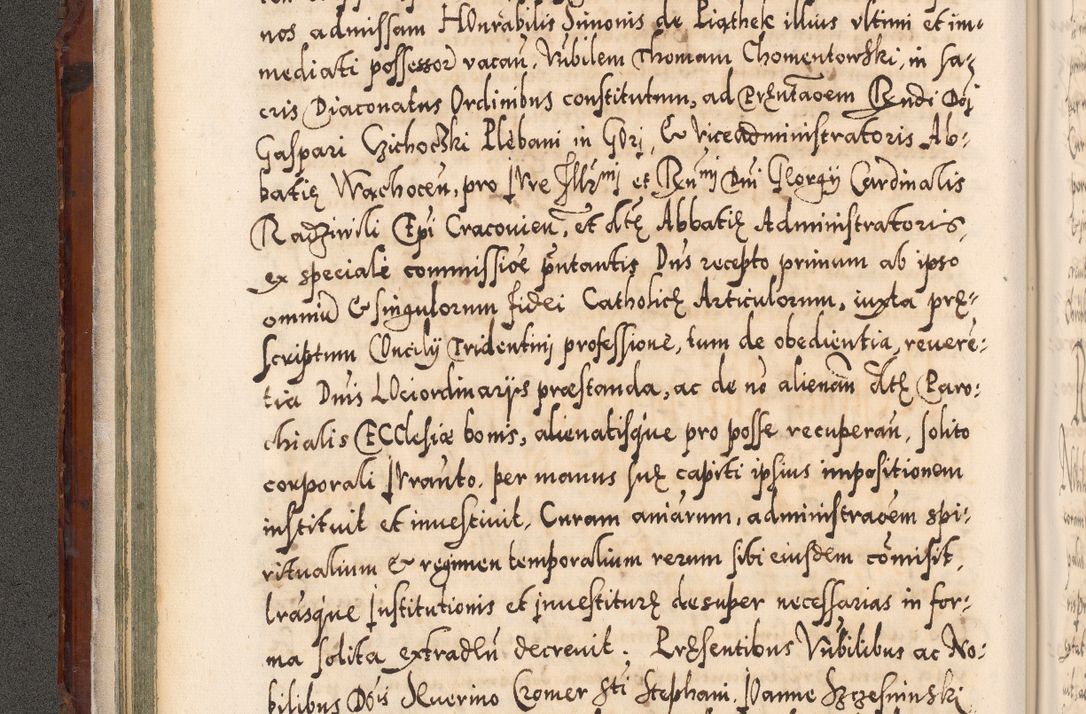 nos admissam HOnrabilis Simonis de Piąthek illius vltimi et im-
mediati possessor vacan, Nobilem Thomam Chomentowski, in sa-
cris Diaconatus Ordinibus constitutum, ad Pręntaoem Rndi Dni
Gaspari Czichoczki Plebani in GOrj, & Viceadministratoris Ab-
batię Wąchocen, pro IVre Illrmi et Rnmi Dni GEorgij Cardinalis
Radziwili Epi Cracouien, et dtę Abbatię Administratoris,
ex speciale commissioe pntantis Dns recepto primum ab ipso
omniu & singulorum fidei Catholicę Articulorum, iuxta prę-
scriptum COncilij Tridentini professione, tum de obedientia, reueren-
tia Dnis LOciordinarijs præstanda, ac de no alienan dtę Paro-
chialis ECClesiæ bonis, alienatisque pro posse recuperan, solito
corporali IVranto, per manus suę capiti ipsius impositionem
instituit et inuestiuit, Curam aniarum, administraoem spi-
ritualium & regimen temporalium rerum sibi eiusdem comisit,
lrasque Institutionis et inuestiturę desuper necessarias in for-
ma solita extradtu decreuit. Pręsentibus Nobilibus ac No-
bilibus Dnis SEuerino Cromer Sti Stephani, IOanne Szczesninski